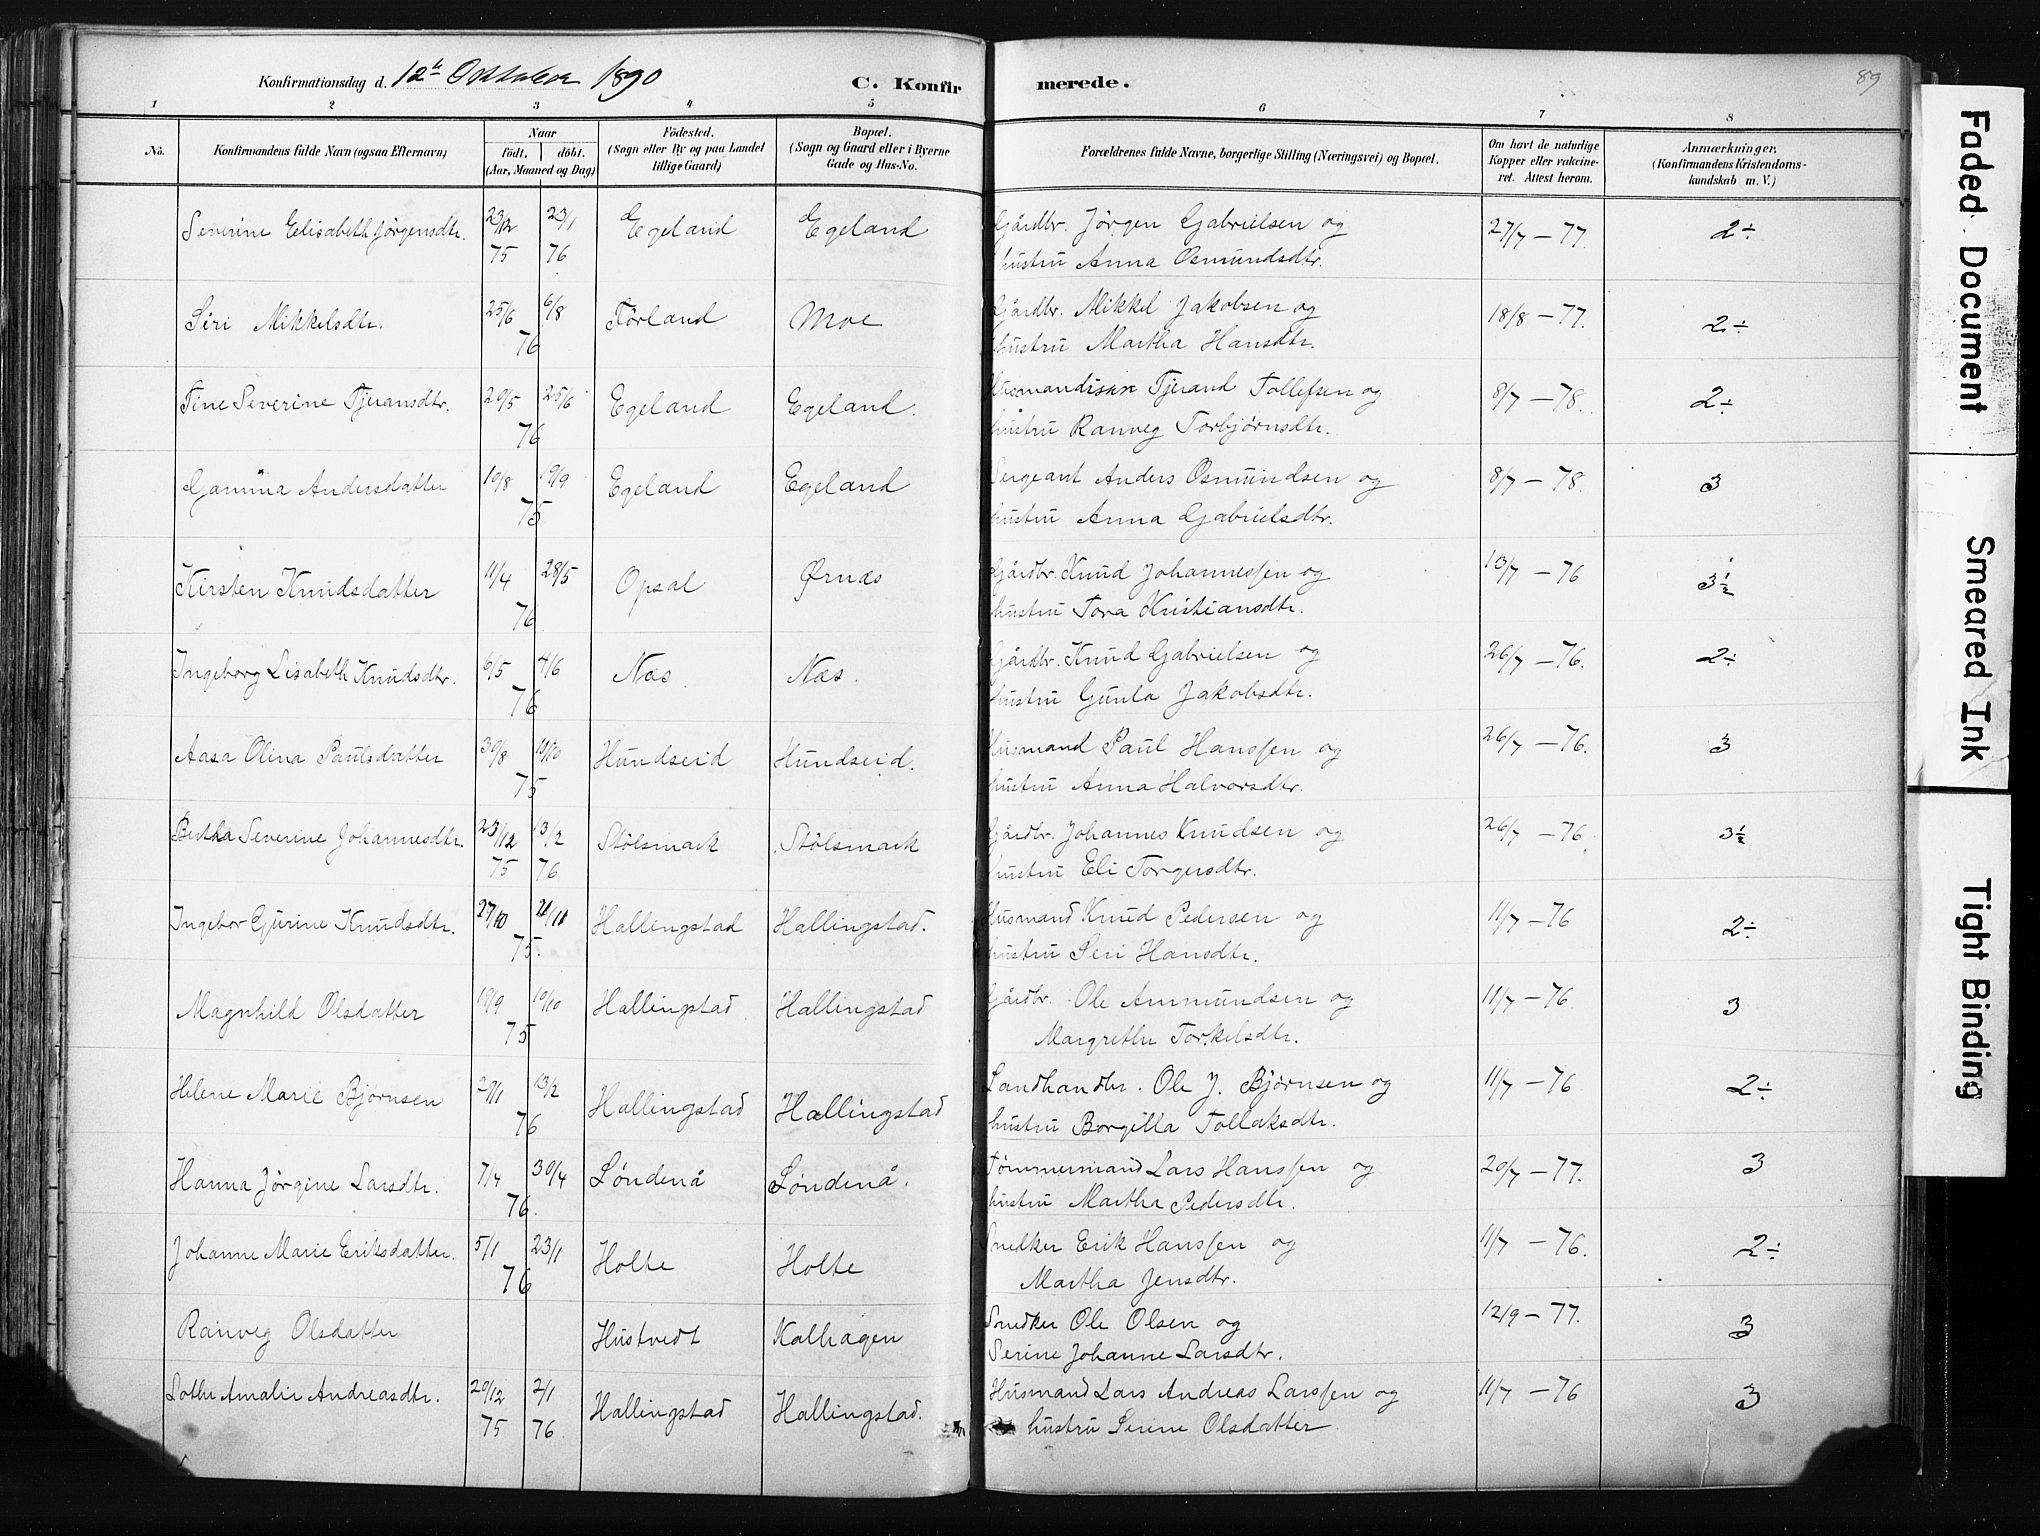 Konfirmationsdag d. 12te Oktober 1890 C. Konfirmerede. 89
1 2 3 4 5 6 7 8
No. Konfirmandens fulde Navn (ogsaa Efternavn) Naar födt. döbt. (Aar, Maaned og Dag) Födested. (Sogn eller By og paa Landet tillige Gaard) Bopæl. (Sogn og Gaard eller i Byerne Gade og Hus-No. Forældrenes fulde Navne, borgerlige Stilling (Næringsvei) og Bopæl. Om havt de naturlige Kopper eller vakcineret. Attest herom. Anmærkninger. (Konfirmandens Kristendomskundskab m. V.)
Severine Elisabeth Jørgensdtr. 23/12 75 23/1 76 Egeland Egeland Gårdbr. Jørgen Gabrielsen og 27/7 – 77. 2÷
hustru Anna Osmundsdtr.
Siri Mikkelsdtr. 25/6 6/8 76 Førland Moe Gårdbr. Mikkel Jakobsen og 18/8 – 77. 2÷
hustru Martha Hansdtr.
Tine Severine Tjeransdtr. 29/5 25/6 76 Egeland Egeland. Tjerand Tollefsen og 8/7 – 78. 2÷
hustru Ranveg Torbjørnsdtr.
Gamina Andersdatter 10/8 19/9 75 Egeland Egeland Sergeant Anders Osmundsen og 8/7 – 78. 3
hustru Anna Gabrielsdtr.
Kirsten Knudsdatter 11/4 28/5 76 Opsal Ørnæs Gårdbr. Knud Johannessen og 13/7 – 76 3½
hustru Tora Kristiansdtr.
Ingeborg Lisabeth Knudsdtr. 6/5 4/6 76 Næs. Næs. Gårdbr. Knud Gabrielsen og 26/7 – 76. 2÷
hustru Gunla Jakobsdtr.
Aasa Olina Paulsdatter 30/8 10/10 75 Hundseid Hundseid. Husmand Paul Hanssen og 26/7 – 76. 3
hustru Anna Halvorsdtr.
Bertha Severine Johannesdtr. 23/12 75 13/2 76 Stølsmark Stølsmark Gårdbr. Johannes Knudsen og 26/7 – 76. 3½
hustru Eli Torgersdtr.
Ingebor Gurine Knudsdtr. 27/10 21/11 75. Hallingstad Hallingstad. Husmand Knud Pedersen og 11/7 – 76 2÷
hustru Seri Hansdtr.
Magnhild Olsdatter 19/9 10/10 75 Hallingstad Hallingstad Gårdbr. Ole Ammundsen og 11/7 – 76 3
Margrethe Torkelsdtr.
Helene Marie Bjørnsen 29/1 13/2 76 Hallingstad Hallingstad Landhandlr. Ole J. Bjørnsen og 11/7 – 76 2÷
hustru Borgilla Tollaksdtr.
Hanna Jørgine Larsdtr. 7/4 30/4 76. Søndenå Søndenå. Tømmermand Lars Hanssen og 20/7 – 77. 3
hustru Martha Pedersdtr.
Johanne Marie Eriksdatter. 5/1 23/1 76 Holte Holte Snedker Erik Hanssen og 11/7 – 76. 2÷
Martha Jensdtr.
Ranveg Olsdatter Hustvedt Kalhagen Snedker Ole Olsen og 12/9 – 77. 3
Serine Johanne Larsdtr.
Lothe Amalie Andreasdtr. 20/12 75 2/1 76 Hallingstad Hallingstad. Husmand Lars Andreas Larssen og 11/7 – 76 3
hustru Serine Olsdatter
Faded Document
Smeared Ink
Tight Binding